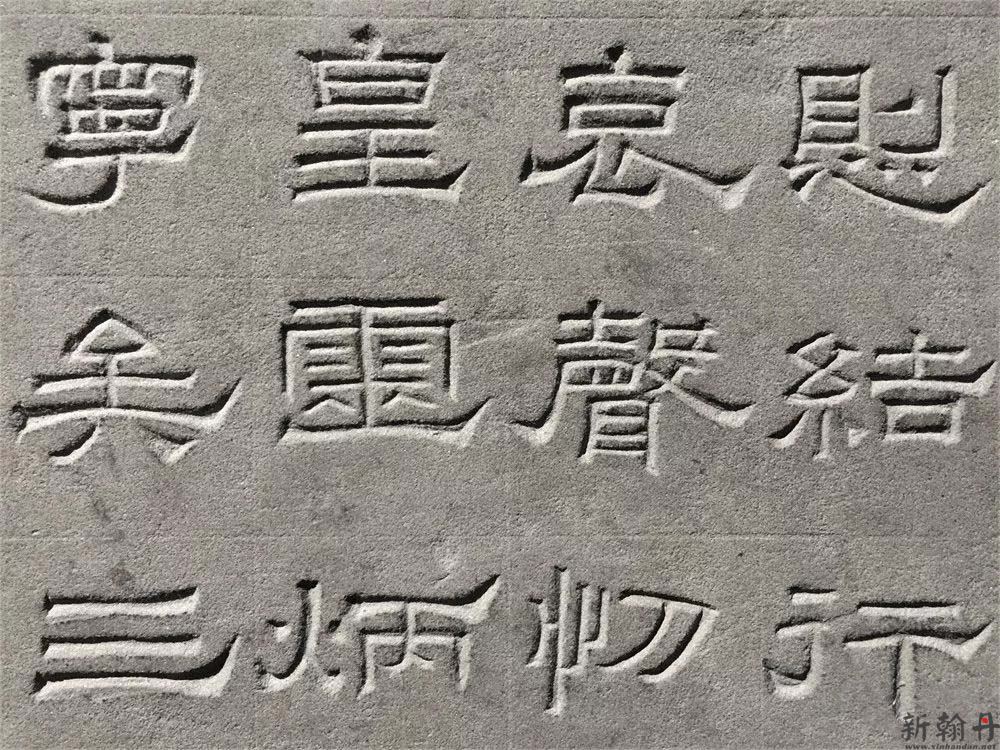 則結行
哀聲忉
皇靈炳
寧矣三
新翰丹
www.xinhandan.net